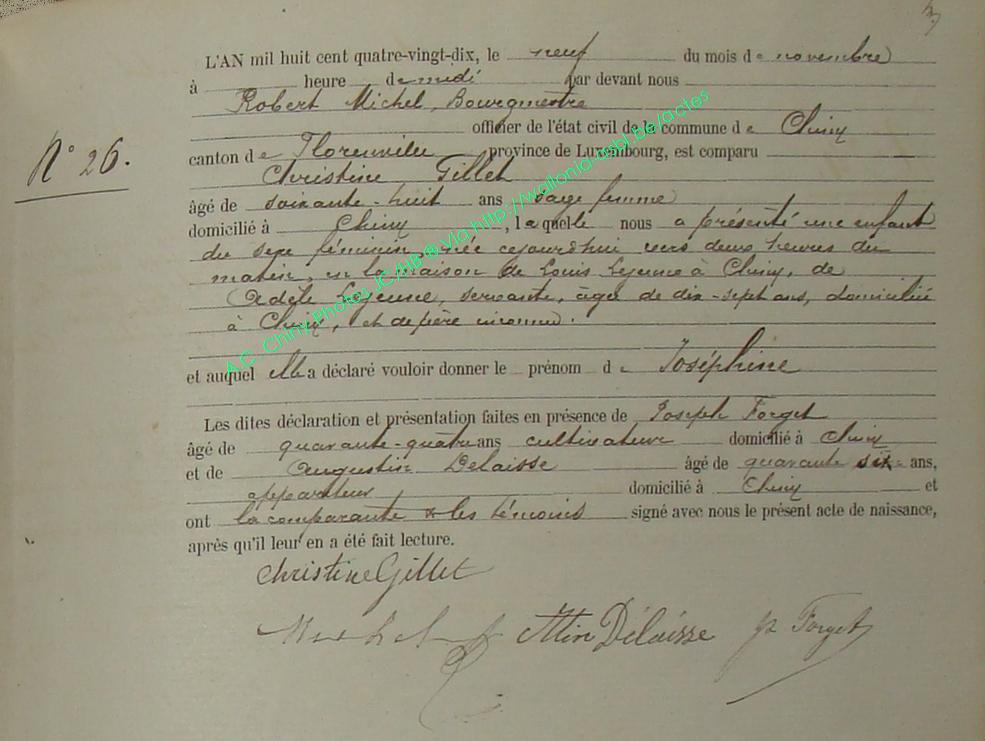 L'AN mil huit cent quatre-vingt-dix, le neuf du mois de novembre
à heure de midi par devant nous
Robert Michel, Bourgmestre
officier de l'état civil de la commune de Chiny
N° 26.
canton de Florenville province de Luxembourg, est comparu
Christine Gillet
âgé de soixante-huit ans sage femme
domicilié à Chiny, laquelle nous a présenté une enfant
du sexe féminin, née cejourd'hui vers deux heures du
matin, en la maison de Louis Lejeune à Chiny, de
Adèle Lejeune, servante, âgée de dix-sept ans, domiciliée
à Chiny, et de père inconnu.
et auquel elle a déclaré vouloir donner le prénom de Joséphine
Les dites déclaration et présentation faites en présence de Joseph Forget
âgé de quarante-quatre ans cultivateur domicilié à Chiny
et de Augustin Delaisse âgé de quarante six ans,
appariteur domicilié à Chiny et
ont la comparante & les témoins signé avec nous le présent acte de naissance,
après qu'il leur en a été fait lecture.
Christine Gillet
Delaisse Forget
A.C. Chiny Photos JC/HB @ via http://wallonia-asbl.be/actes